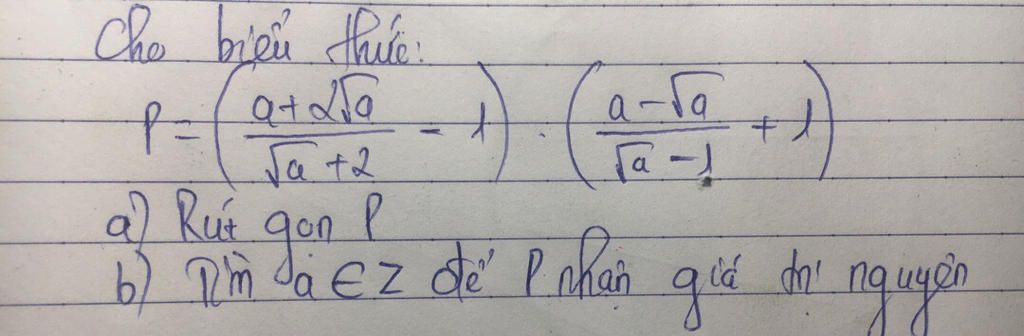 Cho biểu thức:
P = ( (a+2√a)/(√a+2) - 1 ) . ( (a-√a)/(√a-1) + 1 )
a) Rút gọn P
b) Tìm a ∈ Z để P nhận giá trị nguyên